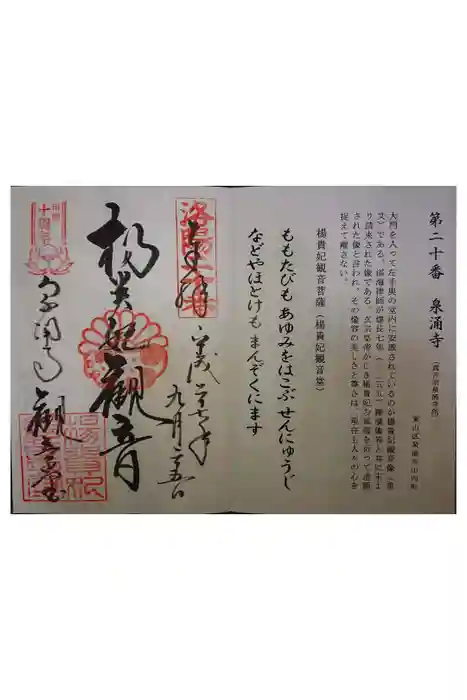 第二十番 泉涌寺 (真言宗泉涌寺派)
東山区泉涌寺山内町
大門を入って左手奥の堂内に安置されているのが楊貴妃観音像(重
文)である。湛海律師が建長七年(一二五五)
り請来された像である。玄宗皇帝が亡き楊貴妃の冥福を祈って造顕
された像と言われ、その像容の美しさと尊さは、現在も人々の心を
捉えて離さない。
楊貴妃観音菩薩(楊貴妃観音堂)
ももたびも あゆみをはこぶ せんにゅうじ
などやほとけも まんぞくにます
奉拝
平成
九月二五日
楊貴妃観音
泉涌寺 観音堂
楊貴妃